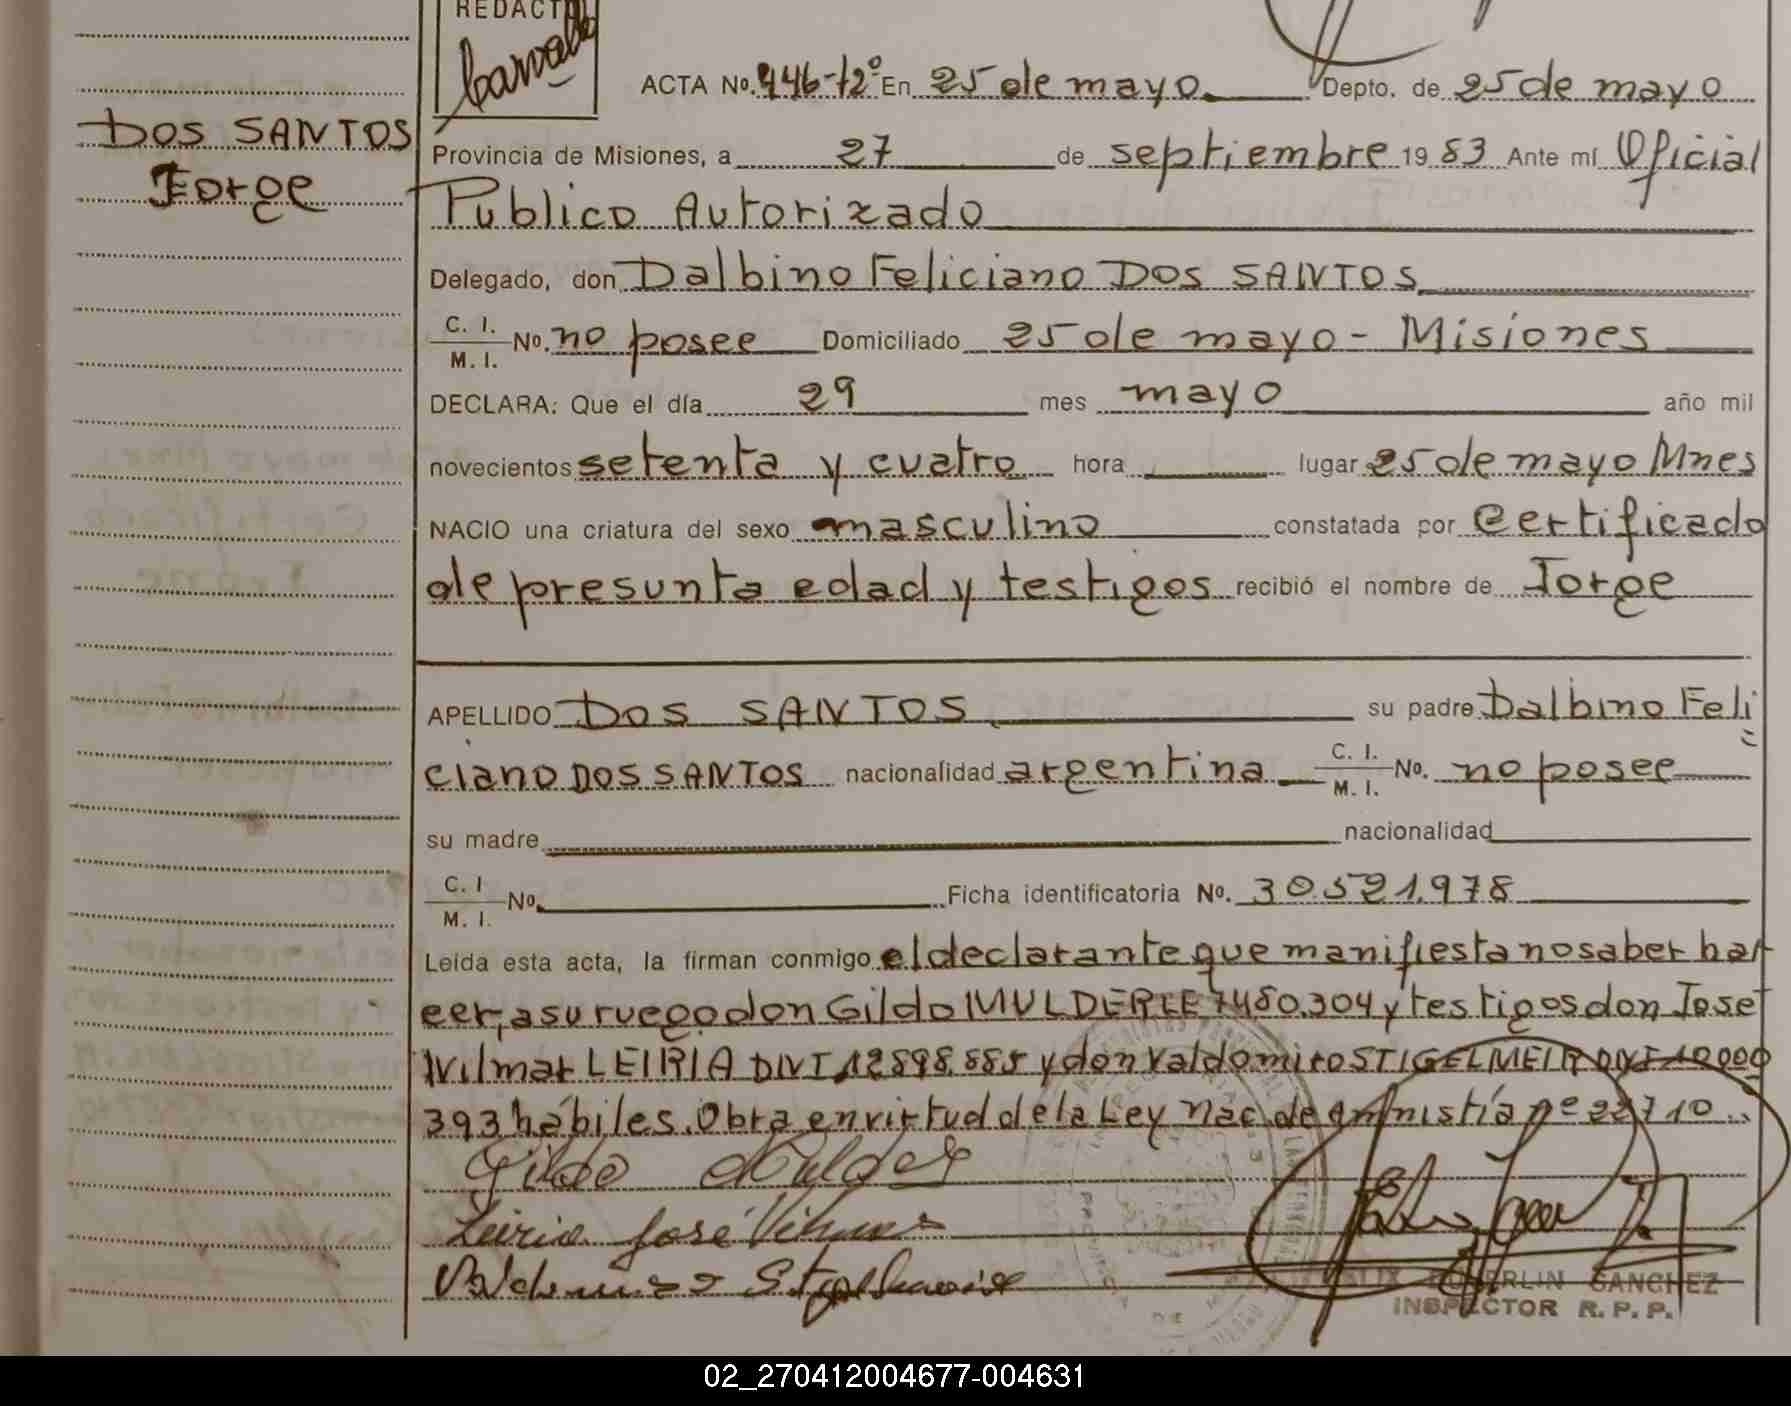 REDACTO
DOS SANTOS
Jorge
ACTA No. 446-12º En 25 de mayo Depto. de 25 de mayo
Provincia de Misiones, a 27 de septiembre 19 83 Ante mí Oficial
Publico Autorizado
Delegado, don Dalbino Feliciano DOS SANTOS
C. I.
M. I. No. no posee Domiciliado 25 de mayo - Misiones
DECLARA: Que el día 29 mes mayo año mil
novecientos setenta y cuatro hora lugar 25 de mayo Mnes
NACIO una criatura del sexo masculino constatada por Certificado
de presunta edad y testigos recibió el nombre de Jorge
APELLIDO DOS SANTOS su padre Dalbino Feli
ciano DOS SANTOS nacionalidad argentina C. I.
M. I. No. no posee
su madre nacionalidad
C. I
M. I. No. Ficha identificatoria No. 30.521.978
Leída esta acta, la firman conmigo el declarante que manifiesta no saber ha
cer, a su ruego don Gildo MULDER LE 7480.304 y testigos don Jose
Wilmar LEIRIA DNI 12898.885 y don Valdomiro STIGELMEIR DNI
393 hábiles. Obra en virtud de la Ley Nac. de amnistía nº 22710
Gildo Mulder
Leiria José Vilmar
SANCHEZ
INSPECTOR R. P. P.
02_270412004677-004631